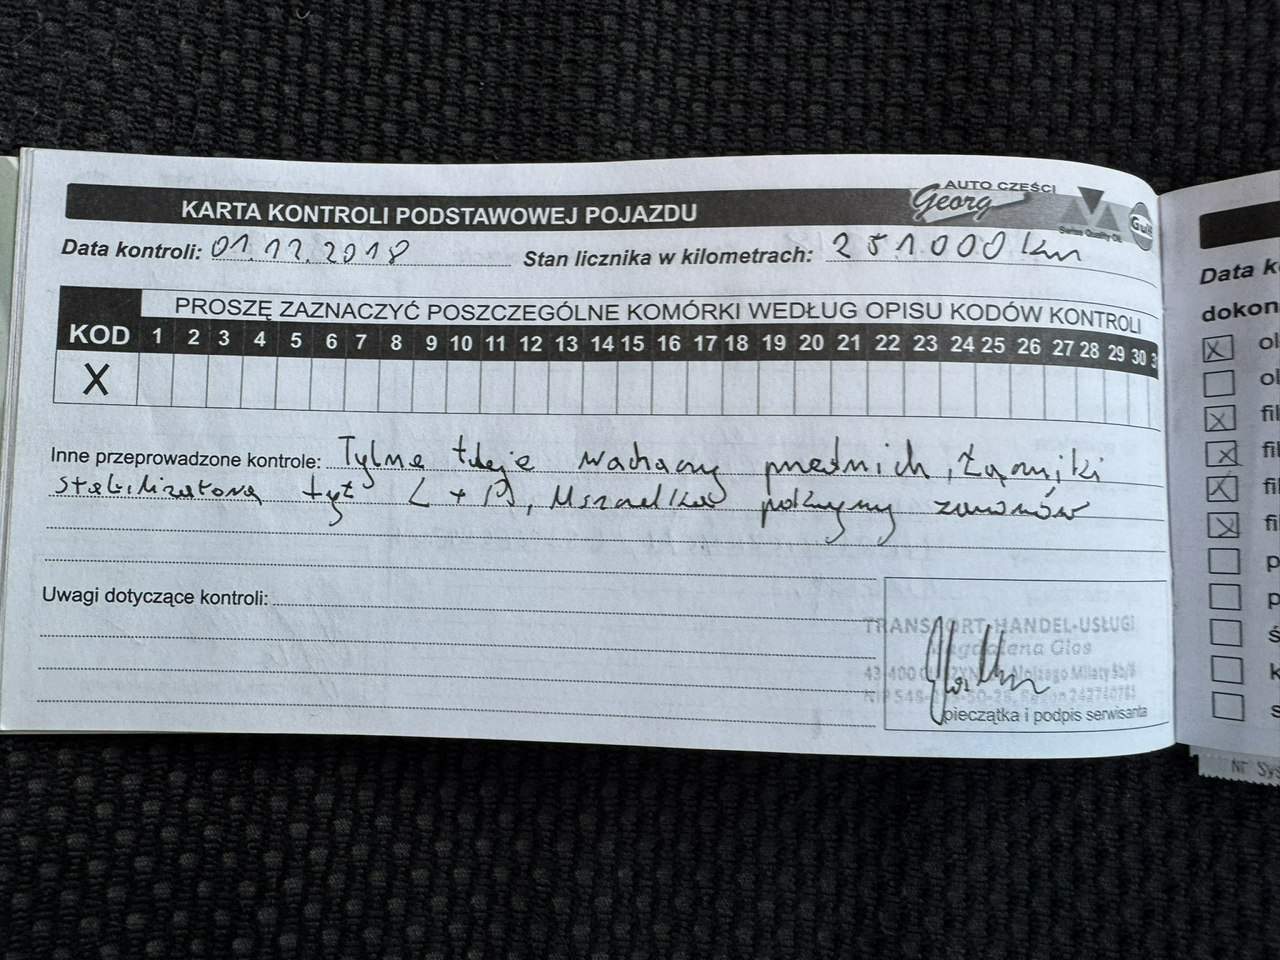 AUTO CZĘŚCI
Georg
Swiss Quality Oil
Gulf
KARTA KONTROLI PODSTAWOWEJ POJAZDU
Data kontroli: 01.12.2018 Stan licznika w kilometrach: 251.000 km
PROSZĘ ZAZNACZYĆ POSZCZEGÓLNE KOMÓRKI WEDŁUG OPISU KODÓW KONTROLI
KOD 1 2 3 4 5 6 7 8 9 10 11 12 13 14 15 16 17 18 19 20 21 22 23 24 25 26 27 28 29 30 3
X
Inne przeprowadzone kontrole: Tylne tuleje wahaczy przednich, Łączniki
stabilizatora tył L + P, Uszczelka pokrywy zaworów
Uwagi dotyczące kontroli:
TRANSPORT-HANDEL-USŁUGI
Magdalena Glos
43-400
pieczątka i podpis serwisanta
Data k
dokon
X ol
ol
X fil
X fil
X fil
X fil
p
p
ś
k
s
Nr Sys